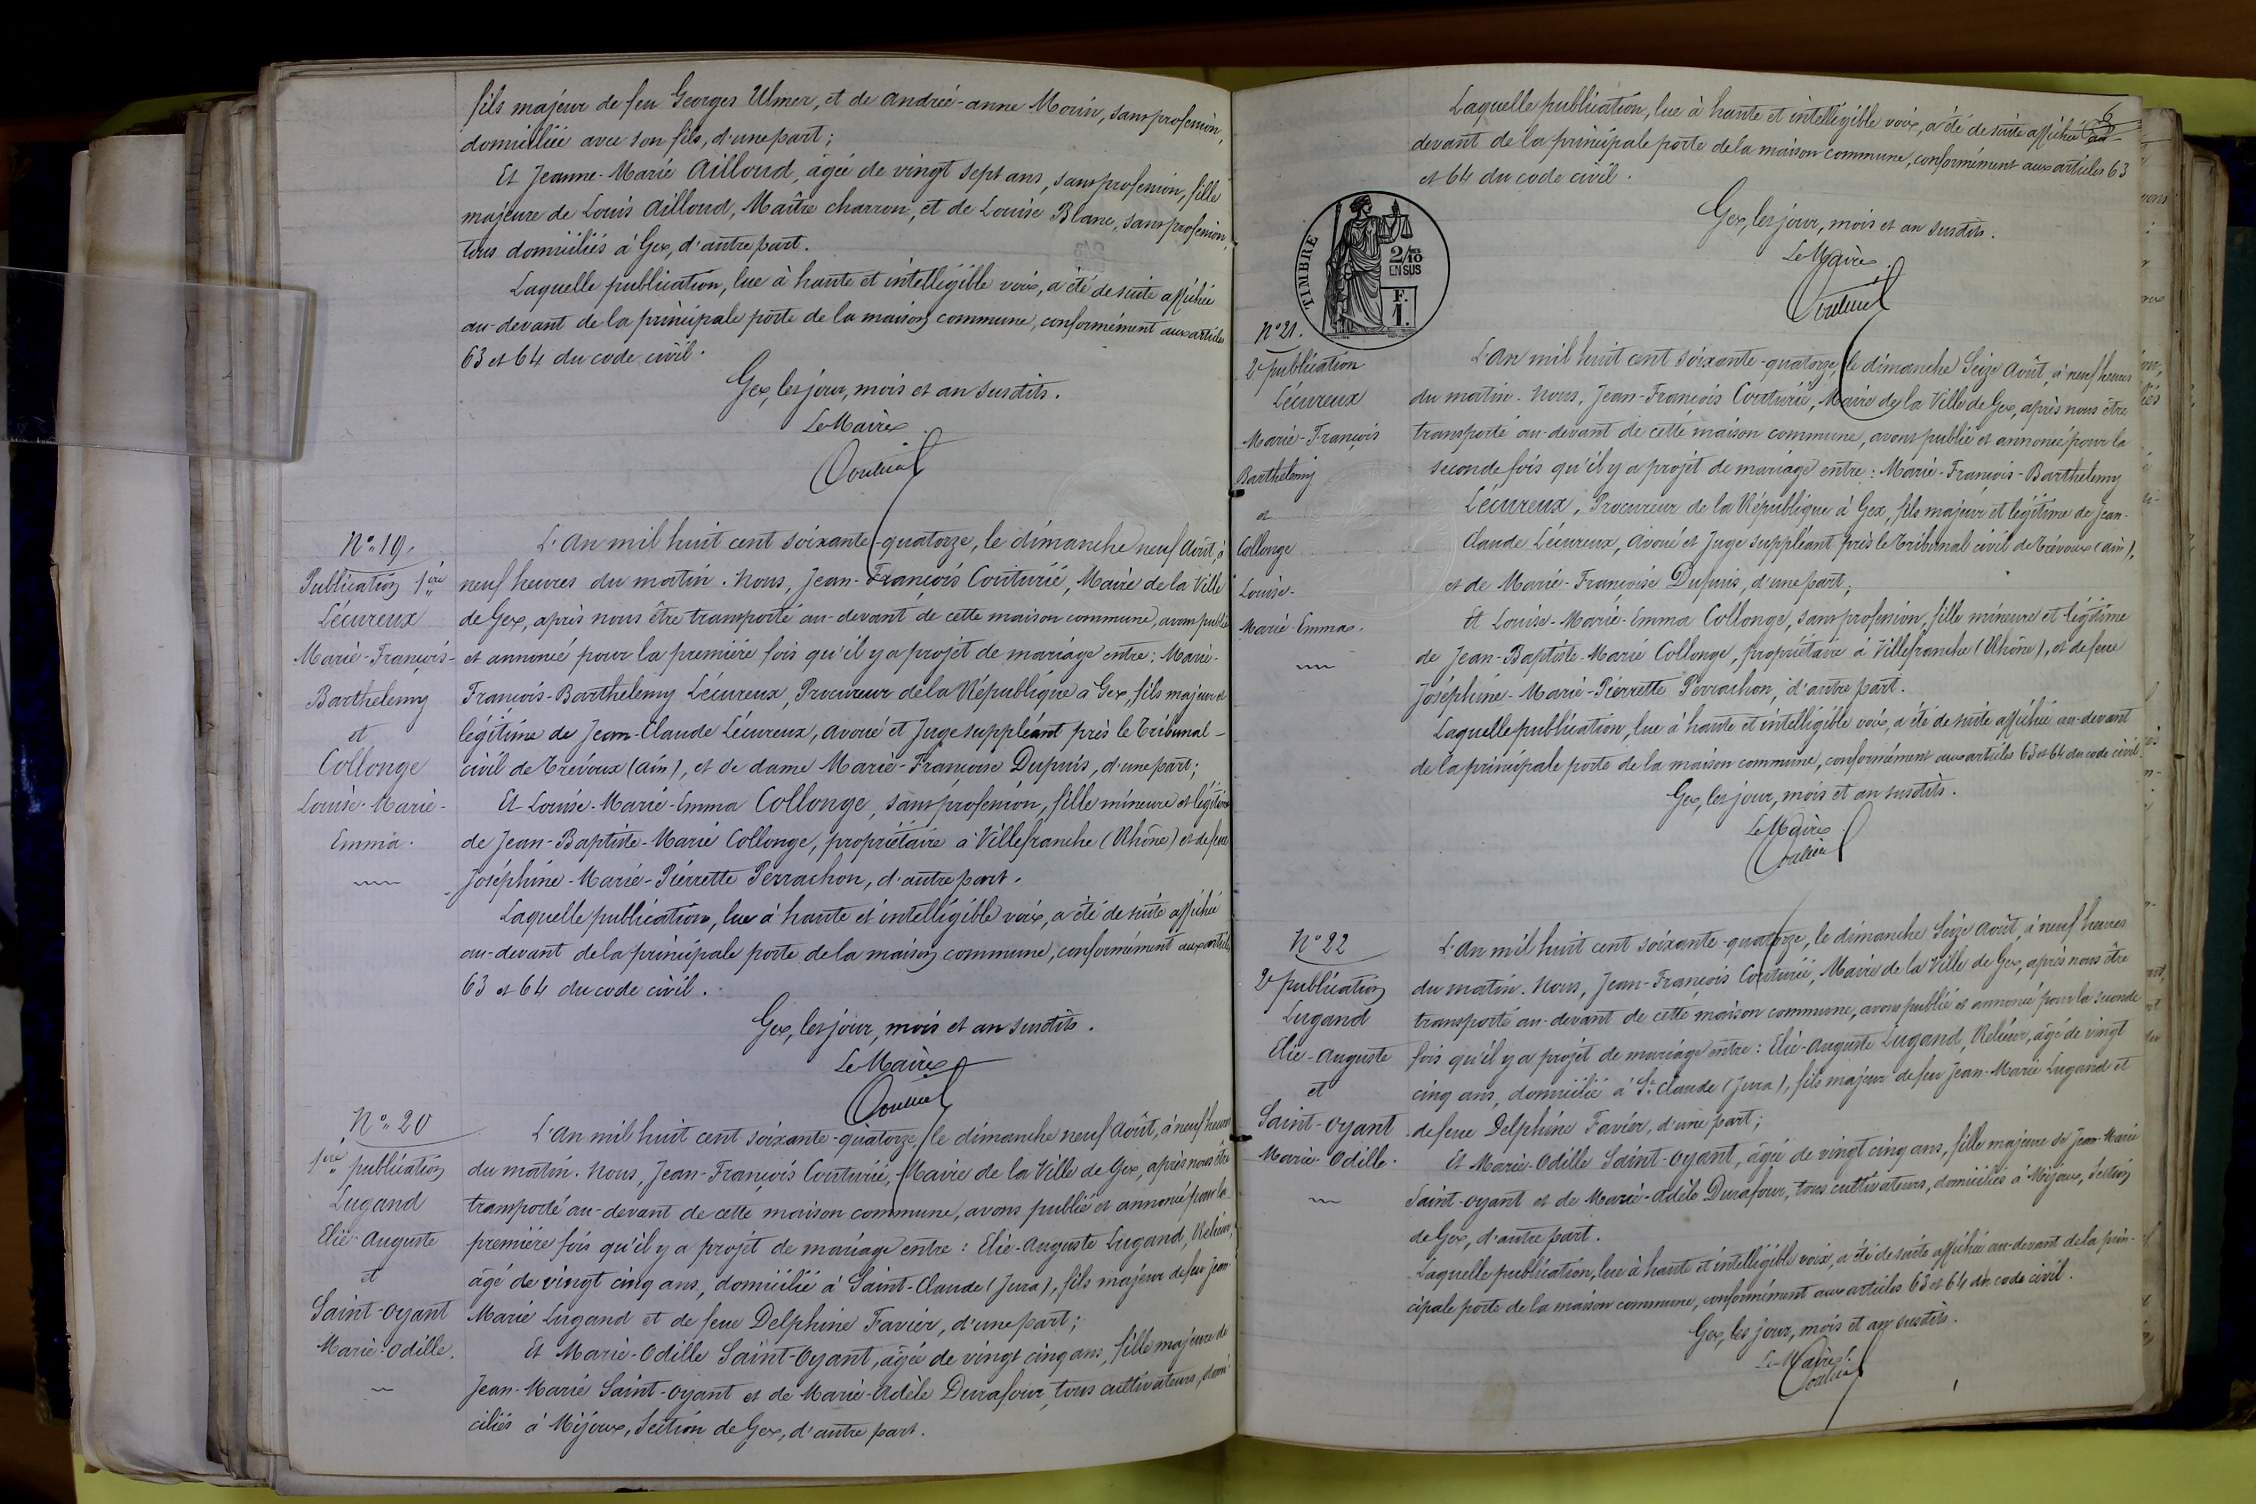 fils majeur de feu Georges Ulmer, et de Andrée-anne Morin, sans profession,
domiciliée avec son fils, d'une part;
Et Jeanne-Marie Ailloud, âgée de vingt sept ans, sans profession, fille
majeure de Louis Ailloud, Maître charron, et de Louise Blanc, sans profession,
tous domiciliés à Gex, d'autre part.
Laquelle publication, lue à haute et intelligible voix, a été de suite affichée
au-devant de la principale porte de la maison commune, conformément aux articles
63 et 64 du code civil.
Gex, les jour, mois et an susdits.
Le Maire
N° 19.
Publication 1ère
Lécureux
Marie-François-
Barthelemy
et
Collonge
Louise-Marie-
Emma.
L'An mil huit cent soixante-quatorze, le dimanche neuf Août, à
neuf heures du matin. Nous, Jean-François Couturié, Maire de la Ville
de Gex, après nous être transporté au-devant de cette maison commune, avons publié
et annoncé pour la première fois qu'il y a projet de mariage entre: Marie-
François-Barthelemy Lécureux, Procureur de la République à Gex, fils majeur et
légitime de Jean-Claude Lécureux, avoué et Juge suppléant près le Tribunal-
civil de Trévoux (ain), et de dame Marie-Françoise Dupuis, d'une part;
Et Louise-Marie-Emma Collonge, sans profession, fille mineure et légitime
de Jean-Baptiste-Marie Collonge, propriétaire à Villefranche (Rhône) et de feue
Joséphine-Marie-Pierrette Perrachon, d'autre part.
Laquelle publication, lue à haute et intelligible voix, a été de suite affichée
au-devant de la principale porte de la maison commune, conformément aux articles
63 et 64 du code civil.
Gex, les jour, mois et an susdits.
Le Maire
N° 20
1ère publication
Lugand
Elie-Auguste
et
Saint-Oyant
Marie-Odille.
L'An mil huit cent soixante-quatorze, le dimanche neuf Août, à neuf heures
du matin. Nous, Jean-François Couturié, Maire de la Ville de Gex, après nous être
transporté au-devant de cette maison commune, avons publié et annoncé pour la
première fois qu'il y a projet de mariage entre: Elie-Auguste Lugand, Relieur,
âgé de vingt cinq ans, domicilié à Saint-Claude (Jura), fils majeur de feu Jean-
Marie Lugand et de feue Delphine Favier, d'une part;
Et Marie-Odille Saint-Oyant, âgée de vingt cinq ans, fille majeure de
Jean-Marie Saint-Oyant et de Marie-Adèle Durafour, tous cultivateurs, domi
ciliés à Mijoux, Section de Gex, d'autre part.
6
Laquelle publication, lue à haute et intelligible voix, a été de suite affichée au
devant de la principale porte de la maison commune, conformément aux articles 63
et 64 du code civil.
Gex, les jour, mois et an susdits.
Le Maire
TIMBRE
2/10
EN SUS
F.
1.
N° 21.
2e publication
Lécureux
Marie-François
Barthelemy
et
Collonge
Louise-
Marie-Emma.
L'An mil huit cent soixante-quatorze, le dimanche Seize Août, à neuf heures
du matin. Nous, Jean-François Couturié, Maire de la Ville de Gex, après nous être
transporté au-devant de cette maison commune, avons publié et annoncé pour la
seconde fois qu'il y a projet de mariage entre: Marie-François-Barthelemy
Lécureux, Procureur de la République à Gex, fils majeur et légitime de Jean-
Claude Lécureux, Avoué et Juge suppléant près le Tribunal civil de Trévoux (ain),
et de Marie-Françoise Dupuis, d'une part;
Et Louise-Marie-Emma Collonge, sans profession, fille mineure et légitime
de Jean-Baptiste-Marie Collonge, propriétaire à Villefranche (Rhône), et de feue
Joséphine-Marie-Pierrette Perrachon, d'autre part.
Laquelle publication, lue à haute et intelligible voix, a été de suite affichée au-devant
de la principale porte de la maison commune, conformément aux articles 63 et 64 du code civil.
Gex, les jour, mois et an susdits.
Le Maire
N° 22
2e publication
Lugand
Elie-Auguste
et
Saint-Oyant
Marie-Odille.
L'An mil huit cent soixante-quatorze, le dimanche Seize Août, à neuf heures
du matin. Nous, Jean-François Couturié, Maire de la Ville de Gex, après nous être
transporté au-devant de cette maison commune, avons publié et annoncé pour la seconde
fois qu'il y a projet de mariage entre: Elie-Auguste Lugand, Relieur, âgé de vingt
cinq ans, domicilié à St Claude (Jura), fils majeur de feu Jean-Marie Lugand et
de feue Delphine Favier, d'une part;
Et Marie-Odille Saint-Oyant, âgée de vingt cinq ans, fille majeure de Jean-Marie
Saint-Oyant et de Marie-Adèle Durafour, tous cultivateurs, domiciliés à Mijoux, Section
de Gex, d'autre part.
Laquelle publication, lue à haute et intelligible voix, a été de suite affichée au-devant de la prin-
cipale porte de la maison commune, conformément aux articles 63 et 64 du code civil.
Gex, les jour, mois et an susdits.
Le Maire